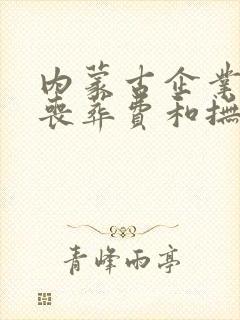 内蒙古企業
喪葬費和撫
青峰雨亭